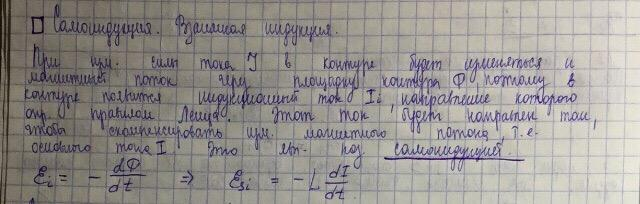 Самоиндукция. Взаимная индукция.
При изм. силы тока I в контуре будет изменяться и
магнитный поток через площадку контура Ф поэтому в
контуре появится индукционный ток Ii, направление которого
опр. правилом Ленца. Этот ток будет направлен так,
чтобы скомпенсировать изм. магнитного потока т.е.
основного тока I. Это явл. наз. самоиндукцией.
Ɛi = - dФ/dt => Ɛsi = -L dI/dt